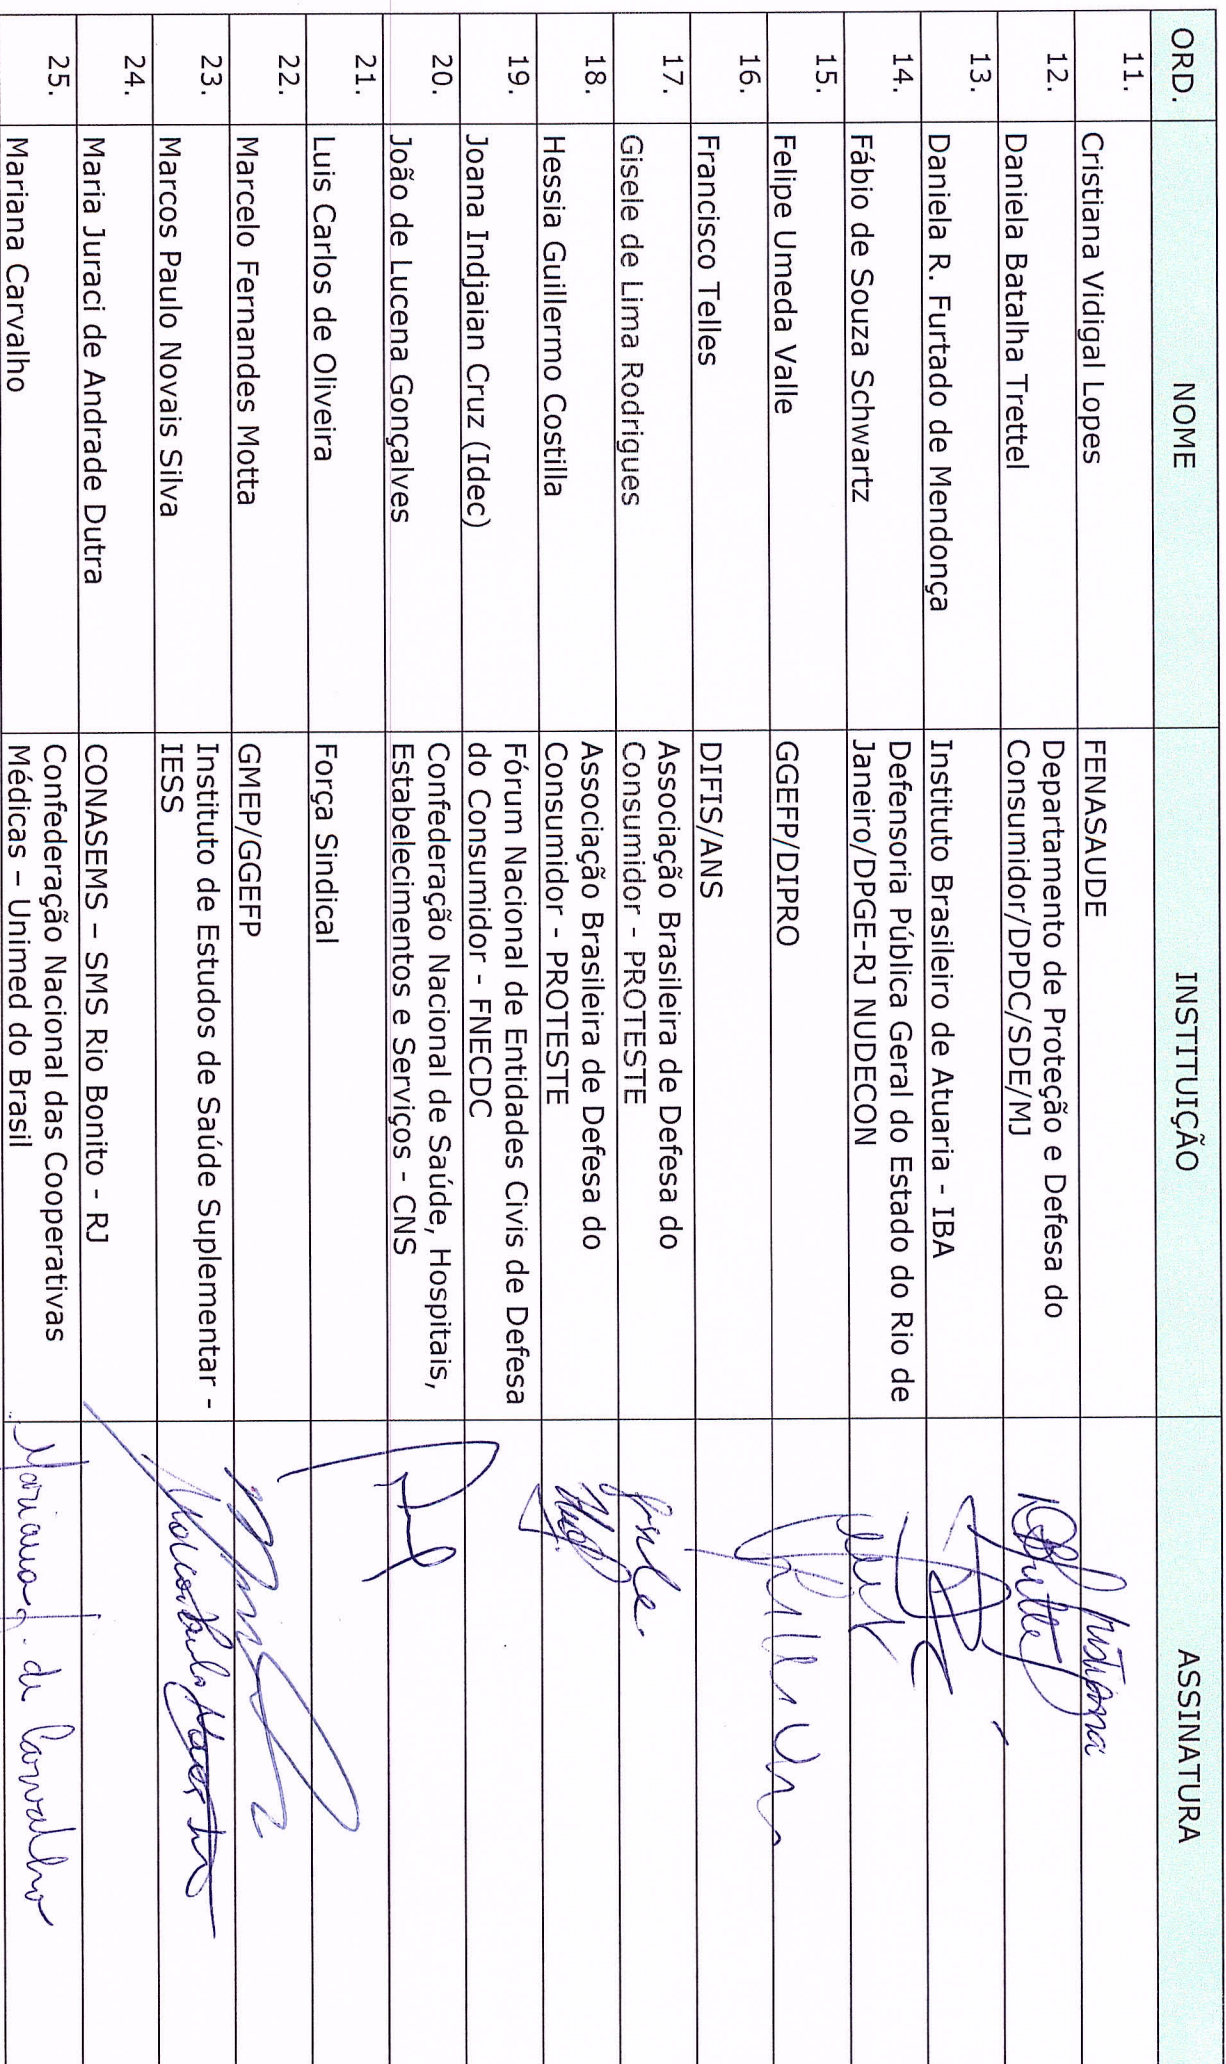 ORD. NOME INSTITUIÇÃO ASSINATURA
11. Cristiana Vidigal Lopes FENASAUDE Cristiana
12. Daniela Batalha Trettel Departamento de Proteção e Defesa do
Consumidor/DPDC/SDE/MJ
13. Daniela R. Furtado de Mendonça Instituto Brasileiro de Atuaria - IBA
14. Fábio de Souza Schwartz Defensoria Pública Geral do Estado do Rio de
Janeiro/DPGE-RJ NUDECON
15. Felipe Umeda Valle GGEFP/DIPRO
16. Francisco Telles DIFIS/ANS
17. Gisele de Lima Rodrigues Associação Brasileira de Defesa do
Consumidor - PROTESTE
18. Hessia Guillermo Costilla Associação Brasileira de Defesa do
Consumidor - PROTESTE
19. Joana Indjaian Cruz (Idec) Fórum Nacional de Entidades Civis de Defesa
do Consumidor - FNECDC
20. João de Lucena Gonçalves Confederação Nacional de Saúde, Hospitais,
Estabelecimentos e Serviços - CNS
21. Luis Carlos de Oliveira Força Sindical
22. Marcelo Fernandes Motta GMEP/GGEFP
23. Marcos Paulo Novais Silva Instituto de Estudos de Saúde Suplementar -
IESS
24. Maria Juraci de Andrade Dutra CONASEMS – SMS Rio Bonito - RJ
25. Mariana Carvalho Confederação Nacional das Cooperativas
Médicas – Unimed do Brasil Mariana de Carvalho